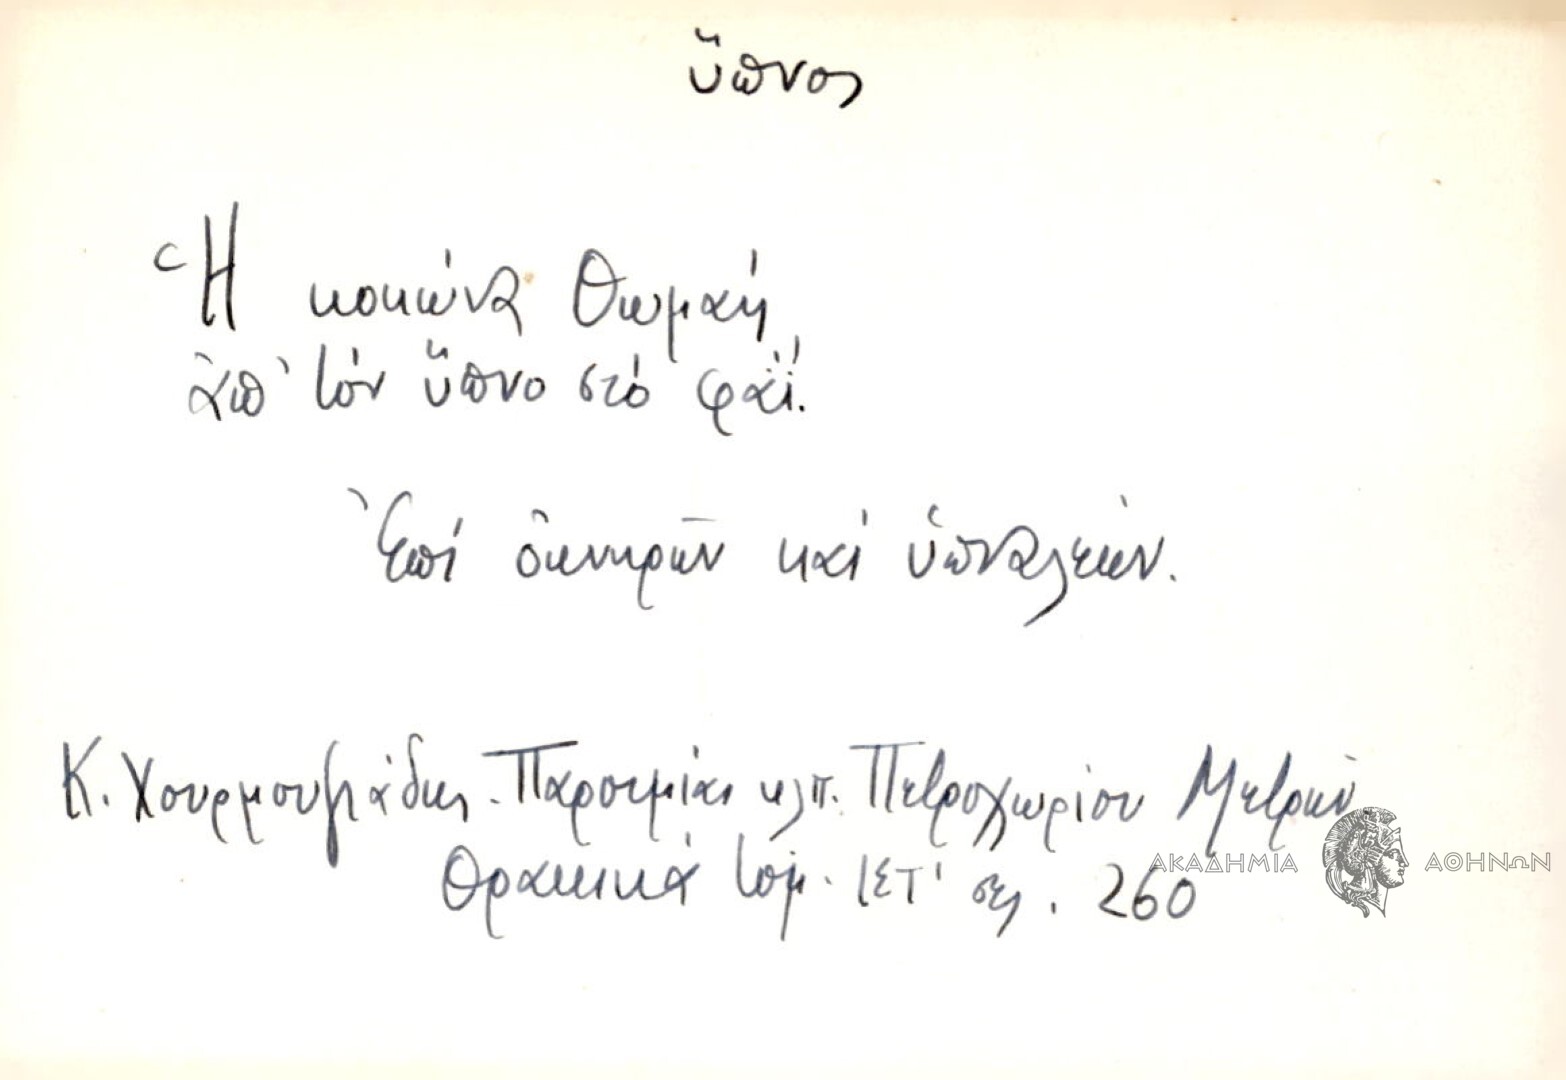 ὕπνος
Ἡ κοκώνα Θωμαή
ἀπ' τόν ὕπνο στό φαΐ.
Ἐπί ὀκνηρῶν καί ὑπναλέων.
Κ. Χουρμουζιάδης. Παροιμίαι κλπ. Πετροχωρίου Μετρῶν
Θρακικά τόμ. ΙΣΤ' σελ. 260
ΑΚΑΔΗΜΙΑ ΑΘΗΝΩΝ